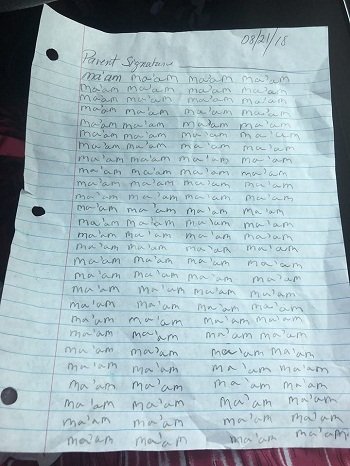 08/21/18
Parent Signature
ma'am ma'am ma'am ma'am
ma'am ma'am ma'am ma'am
ma'am ma'am ma'am ma'am
ma'am ma'am ma'am ma'am
ma'am ma'am ma'am ma'am
ma'am ma'am ma'am ma'am
ma'am ma'am ma'am ma'am
ma'am ma'am ma'am ma'am
ma'am ma'am ma'am ma'am
ma'am ma'am ma'am ma'am
ma'am ma'am ma'am ma'am
ma'am ma'am ma'am ma'am
ma'am ma'am ma'am ma'am
ma'am ma'am ma'am ma'am
ma'am ma'am ma'am ma'am
ma'am ma'am ma'am ma'am
ma'am ma'am ma'am ma'am
ma'am ma'am ma'am ma'am
ma'am ma'am ma'am ma'am
ma'am ma'am ma'am ma'am
ma'am ma'am ma'am ma'am
ma'am ma'am ma'am ma'am
ma'am ma'am ma'am ma'am
ma'am ma'am ma'am ma'am
ma'am ma'am ma'am ma'am
ma'am ma'am ma'am ma'am
ma'am ma'am ma'am ma'am